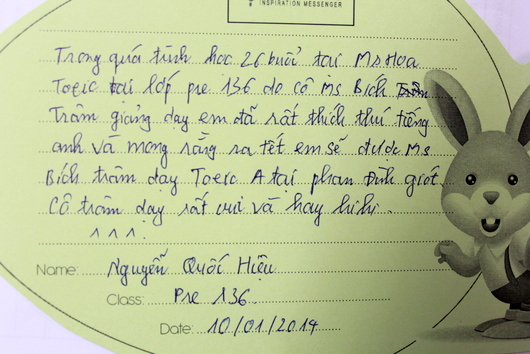 INSPIRATION MESSENGER
Trong quá trình học 26 buổi tại Ms Hoa
Toeic tại lớp pre 136 do cô Ms Bích
Trâm giảng dạy em đã rất thích thú tiếng
anh và mong rằng ra tết em sẽ được Ms
Bích trâm dạy Toeic A tại phan Đình giót
Cô trâm dạy rất vui và hay hihi.
^ ^ ^.
Name: Nguyễn Quốc Hiệu
Class: Pre 136
Date: 10/01/2014